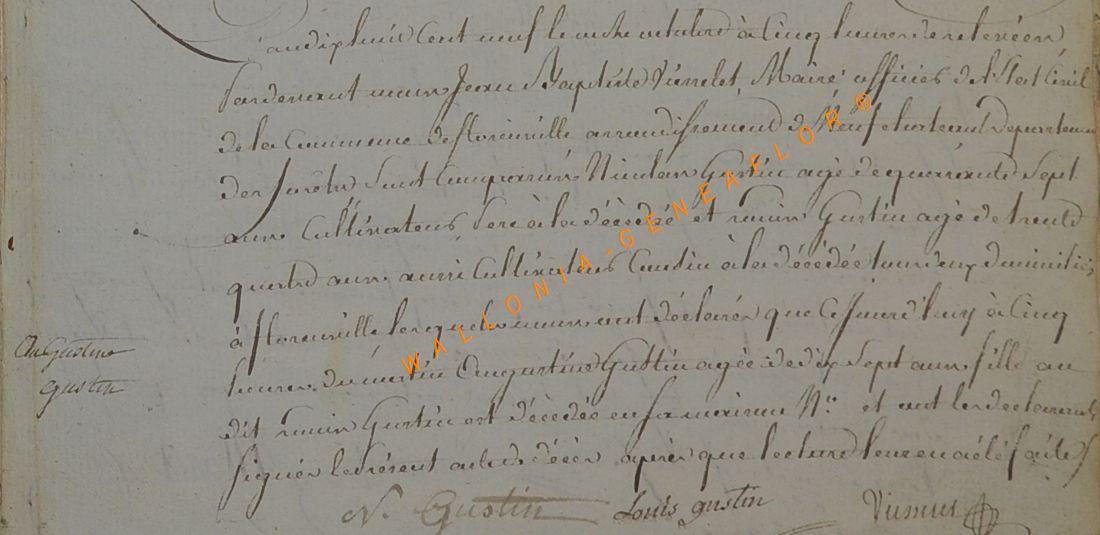 an dix huit Cent neuf le onze octobre à Cinq heures de relevée
Pardevant nous Jean Baptiste Maire officier de l'Etat Civil
de la Commune de florenville arrondissement de Neufchateau Departement
des forêts Sont Comparus Nicolas Gustin agé de quarante Sept
ans Cultivateur Pere à la décédée et Gustin agé de trente
quatre ans aussi Cultivateur Cousin à la décédée tous deux domiciliés
à florenville lesquels nous ont déclarés que Ce jourd'huy à Cinq
heures du matin Augustine Gustin agée de dix Sept ans fille au
dit Gustin est décédée en sa maison N° et ont les declarants
signés le présent acte de décès après que lecture leur en a été faite
Augustine
gustin
N. Gustin Louis gustin
WALLONIA-GENEAFLOR®